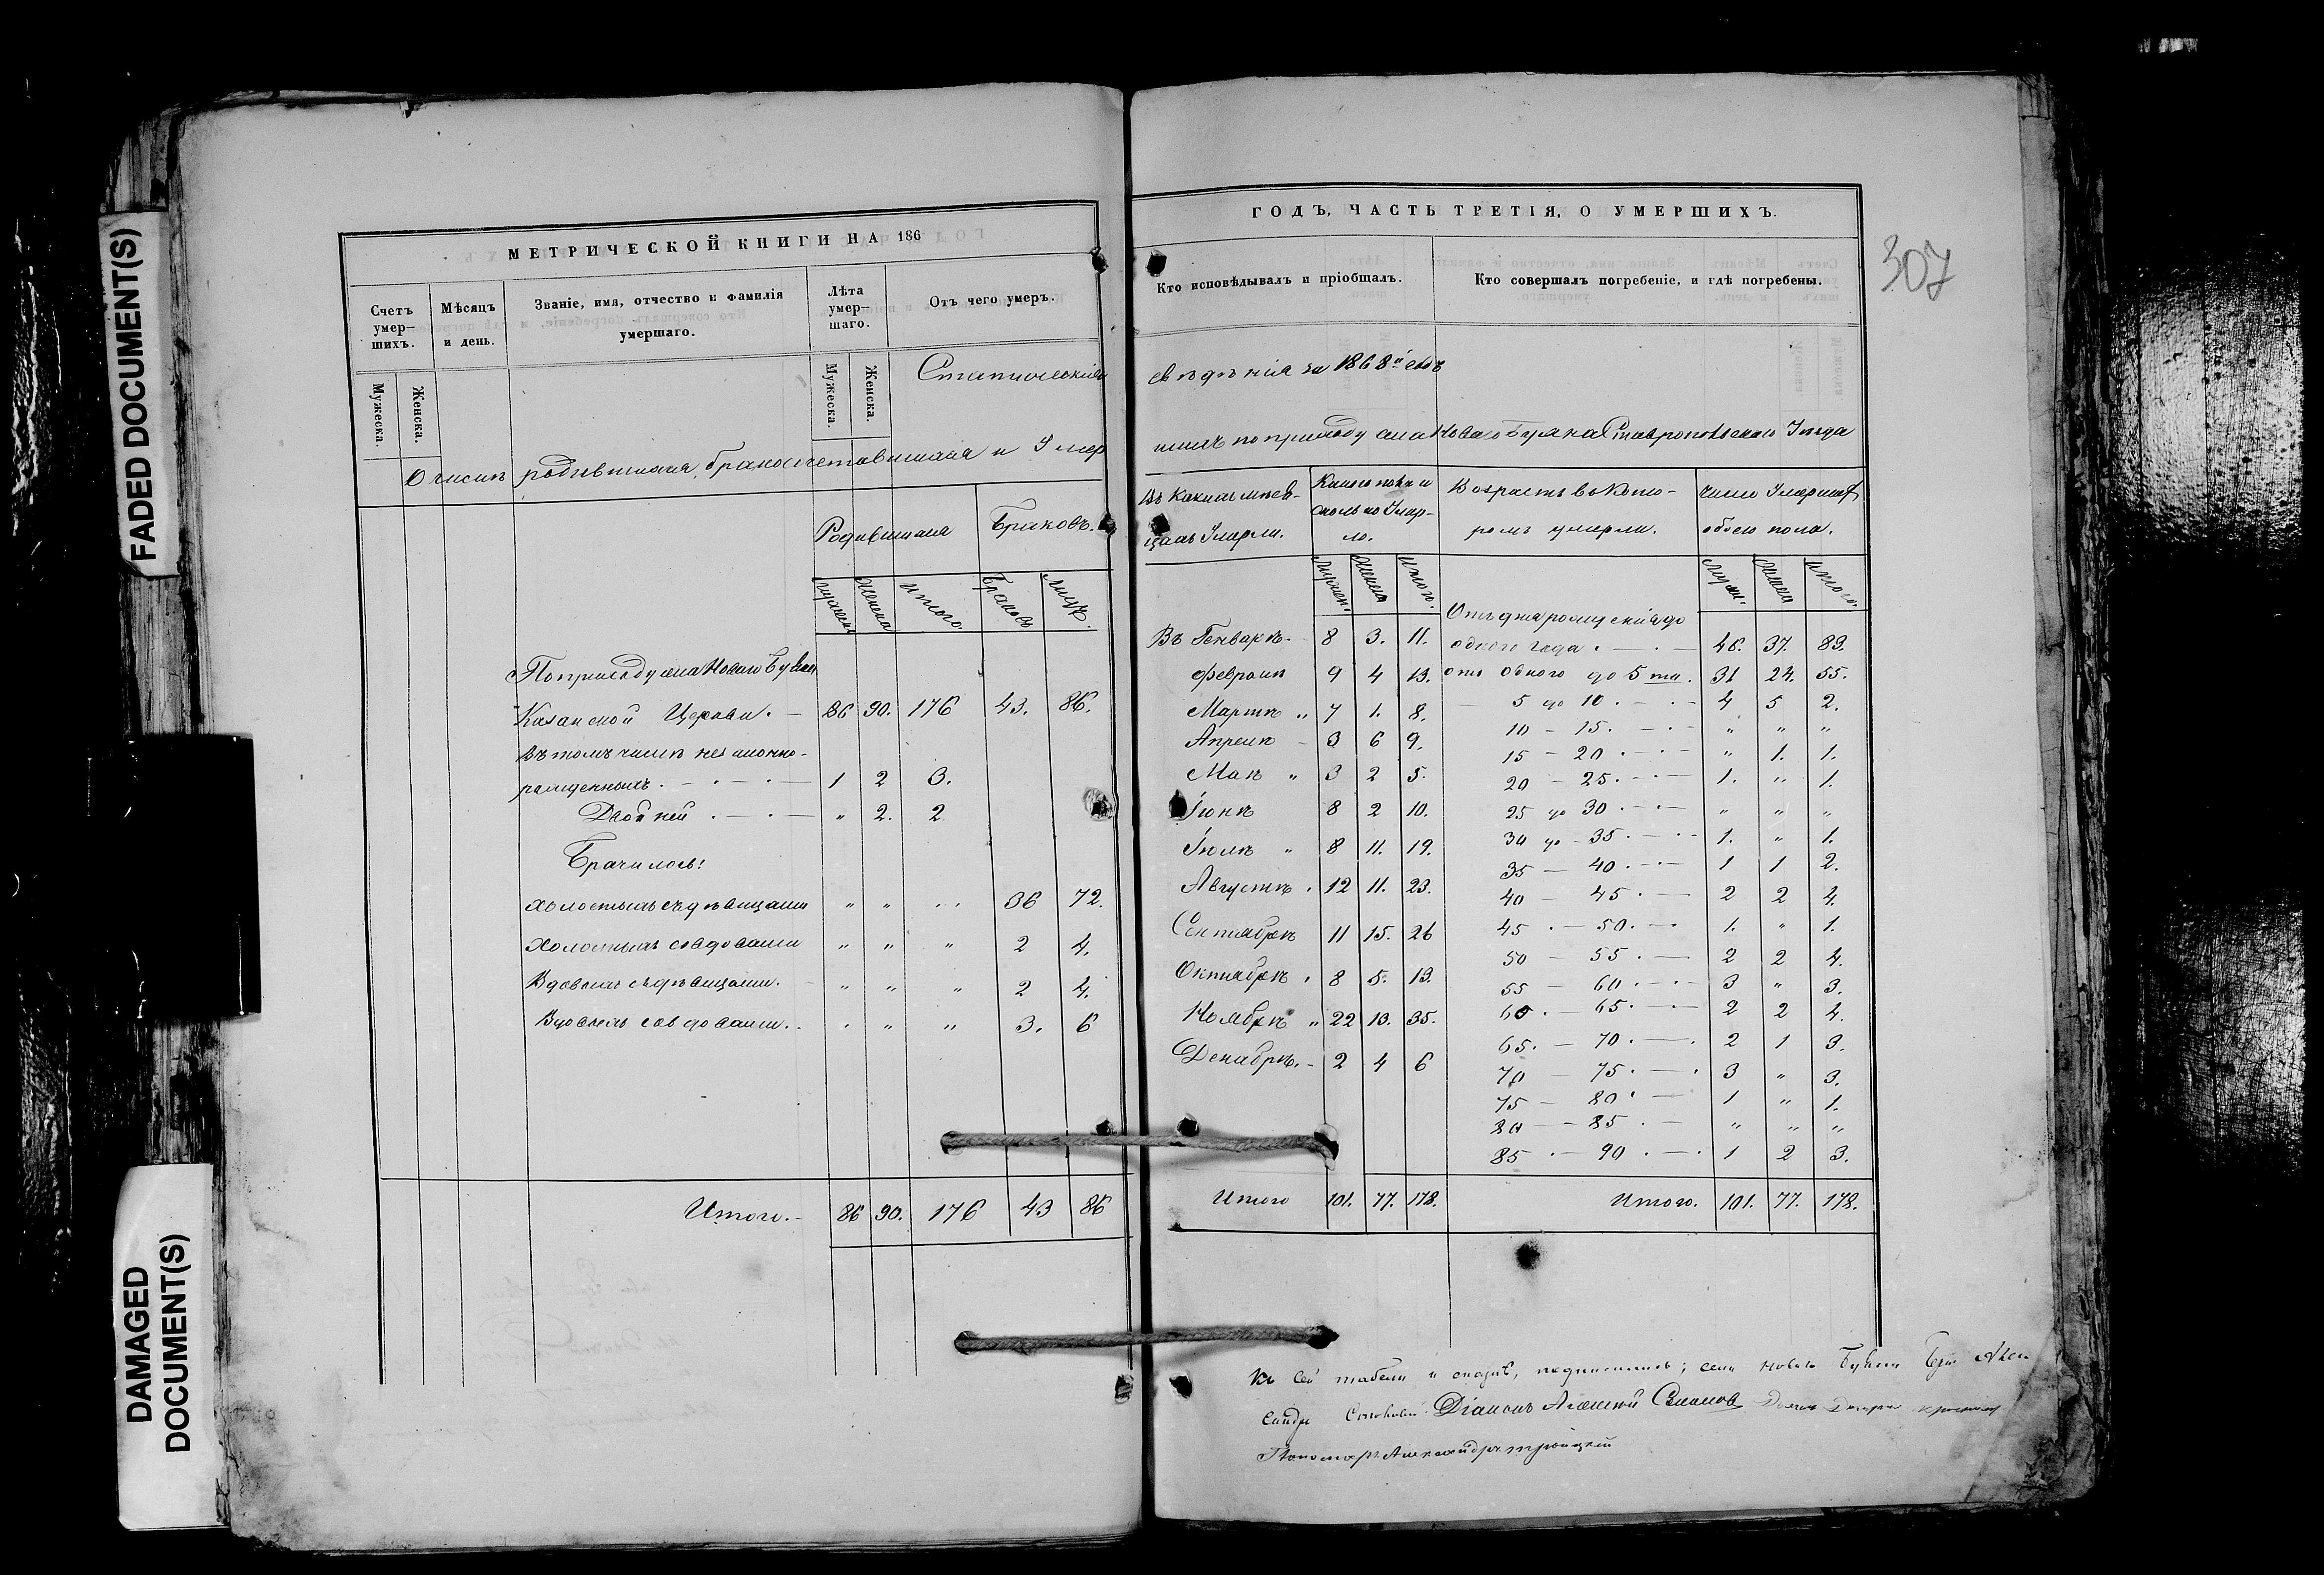 FADED DOCUMENT(S)
DAMAGED DOCUMENT(S)
МЕТРИЧЕСКОЙ КНИГИ НА 186
Счетъ умер-шихъ. Мѣсяцъ и день. Званіе, имя, отчество и фамилія умершаго. Лѣта умер-шаго. Отъ чего умеръ.
Мужеска. Женска. Мужеска. Женска.
О числѣ родившихся, бракосочетавшихся и Умер
Родившихся Браковъ.
Женска Итого Браковъ Лицъ.
По приходу села Новаго Буяна
Казанской Церкви. — 86 90. 176 43. 86.
Въ томъ числѣ незаконно-
рожденныхъ. — 1 2 3.
Двойней — „ 2. 2
Брачилось:
Холостыхъ съ дѣвицами „ „ „ 36 72.
Холостыхъ со вдовами „ „ „ 2 4.
Вдовыхъ съ дѣвицами. „ „ „ 2 4.
Вдовыхъ со вдовами. „ „ „ 3. 6
Итого. 86 90. 176 43 86
ГОДЪ, ЧАСТЬ ТРЕТІЯ, О УМЕРШИХЪ.
307
Кто исповѣдывалъ и пріобщалъ. Кто совершалъ погребеніе, и гдѣ погребены.
свѣдѣнія за 1868й
шихъ по приходу села Новаго Буяна Ставропольскаго Уѣзда
Въ какихъ мѣся- Какого пола и Возрастъ въ кото- Число Умершихъ
цахъ Умерли. сколько Умер- ромъ умерли. обоего пола.
ло.
Женска Итого. Итого.
Отъ дня рожденія до
Въ Генварѣ. 8 3. 11. одного года. — 46. 37. 83.
Февралѣ 9 4 13. отъ одного до 5ти. 31 24. 55.
Мартѣ „ 7 1. 8. 5 до 10. — 4 5 2.
Апрелѣ 3 6 9. 10 — 15. — „ „ „
15 — 20. — „ 1. 1.
Маѣ „ 3 2 5. 20 — 25. — 1. „ 1.
Іюнѣ 8 2 10. 25 до 30. — „ „ „
Іюлѣ „ 8 11. 19. 30 до 35. — 1. „ 1.
35 — 40. — 1 1 2.
Августѣ. 12 11. 23. 40 — 45. — 2 2 4.
Сентябрѣ 11 15. 26 45. — 50. — 1. „ 1.
50 — 55. — 2 2 4.
Октябрѣ. 8 5. 13. 55 — 60. — 3 „ 3.
Ноябрѣ „ 22 13. 35. 60. — 65. — 2 2 4.
65. — 70. — 2 1 3.
Декабрѣ. 2 4 6 70 — 75. — 3 „ 3.
75 — 80. — 1 „ 1.
80 — 85. — „ „ „
85. — 90. — 1 2 3.
Итого 101. 77. 178. Итого. 101. 77. 178.
Къ сей табели села Новаго Буяна
Діаконъ Алексѣй
Пономарь Александръ Троицкій